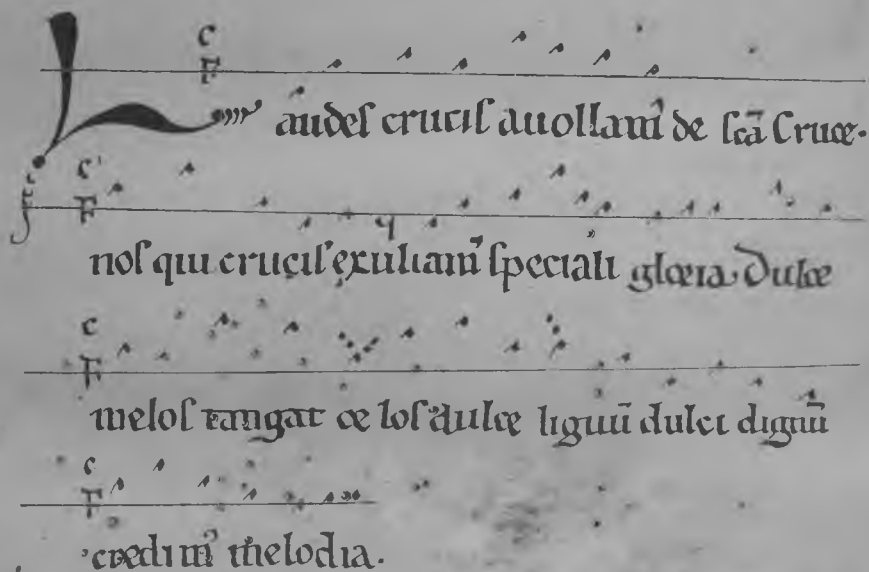 Laudes crucis attollam᷒ de sc̄a Cruce.
nos qui crucis exultam᷒ speciali gloria. Dulce
melos tangat celos dulce lignū dulci dignū
credim᷒ melodia.